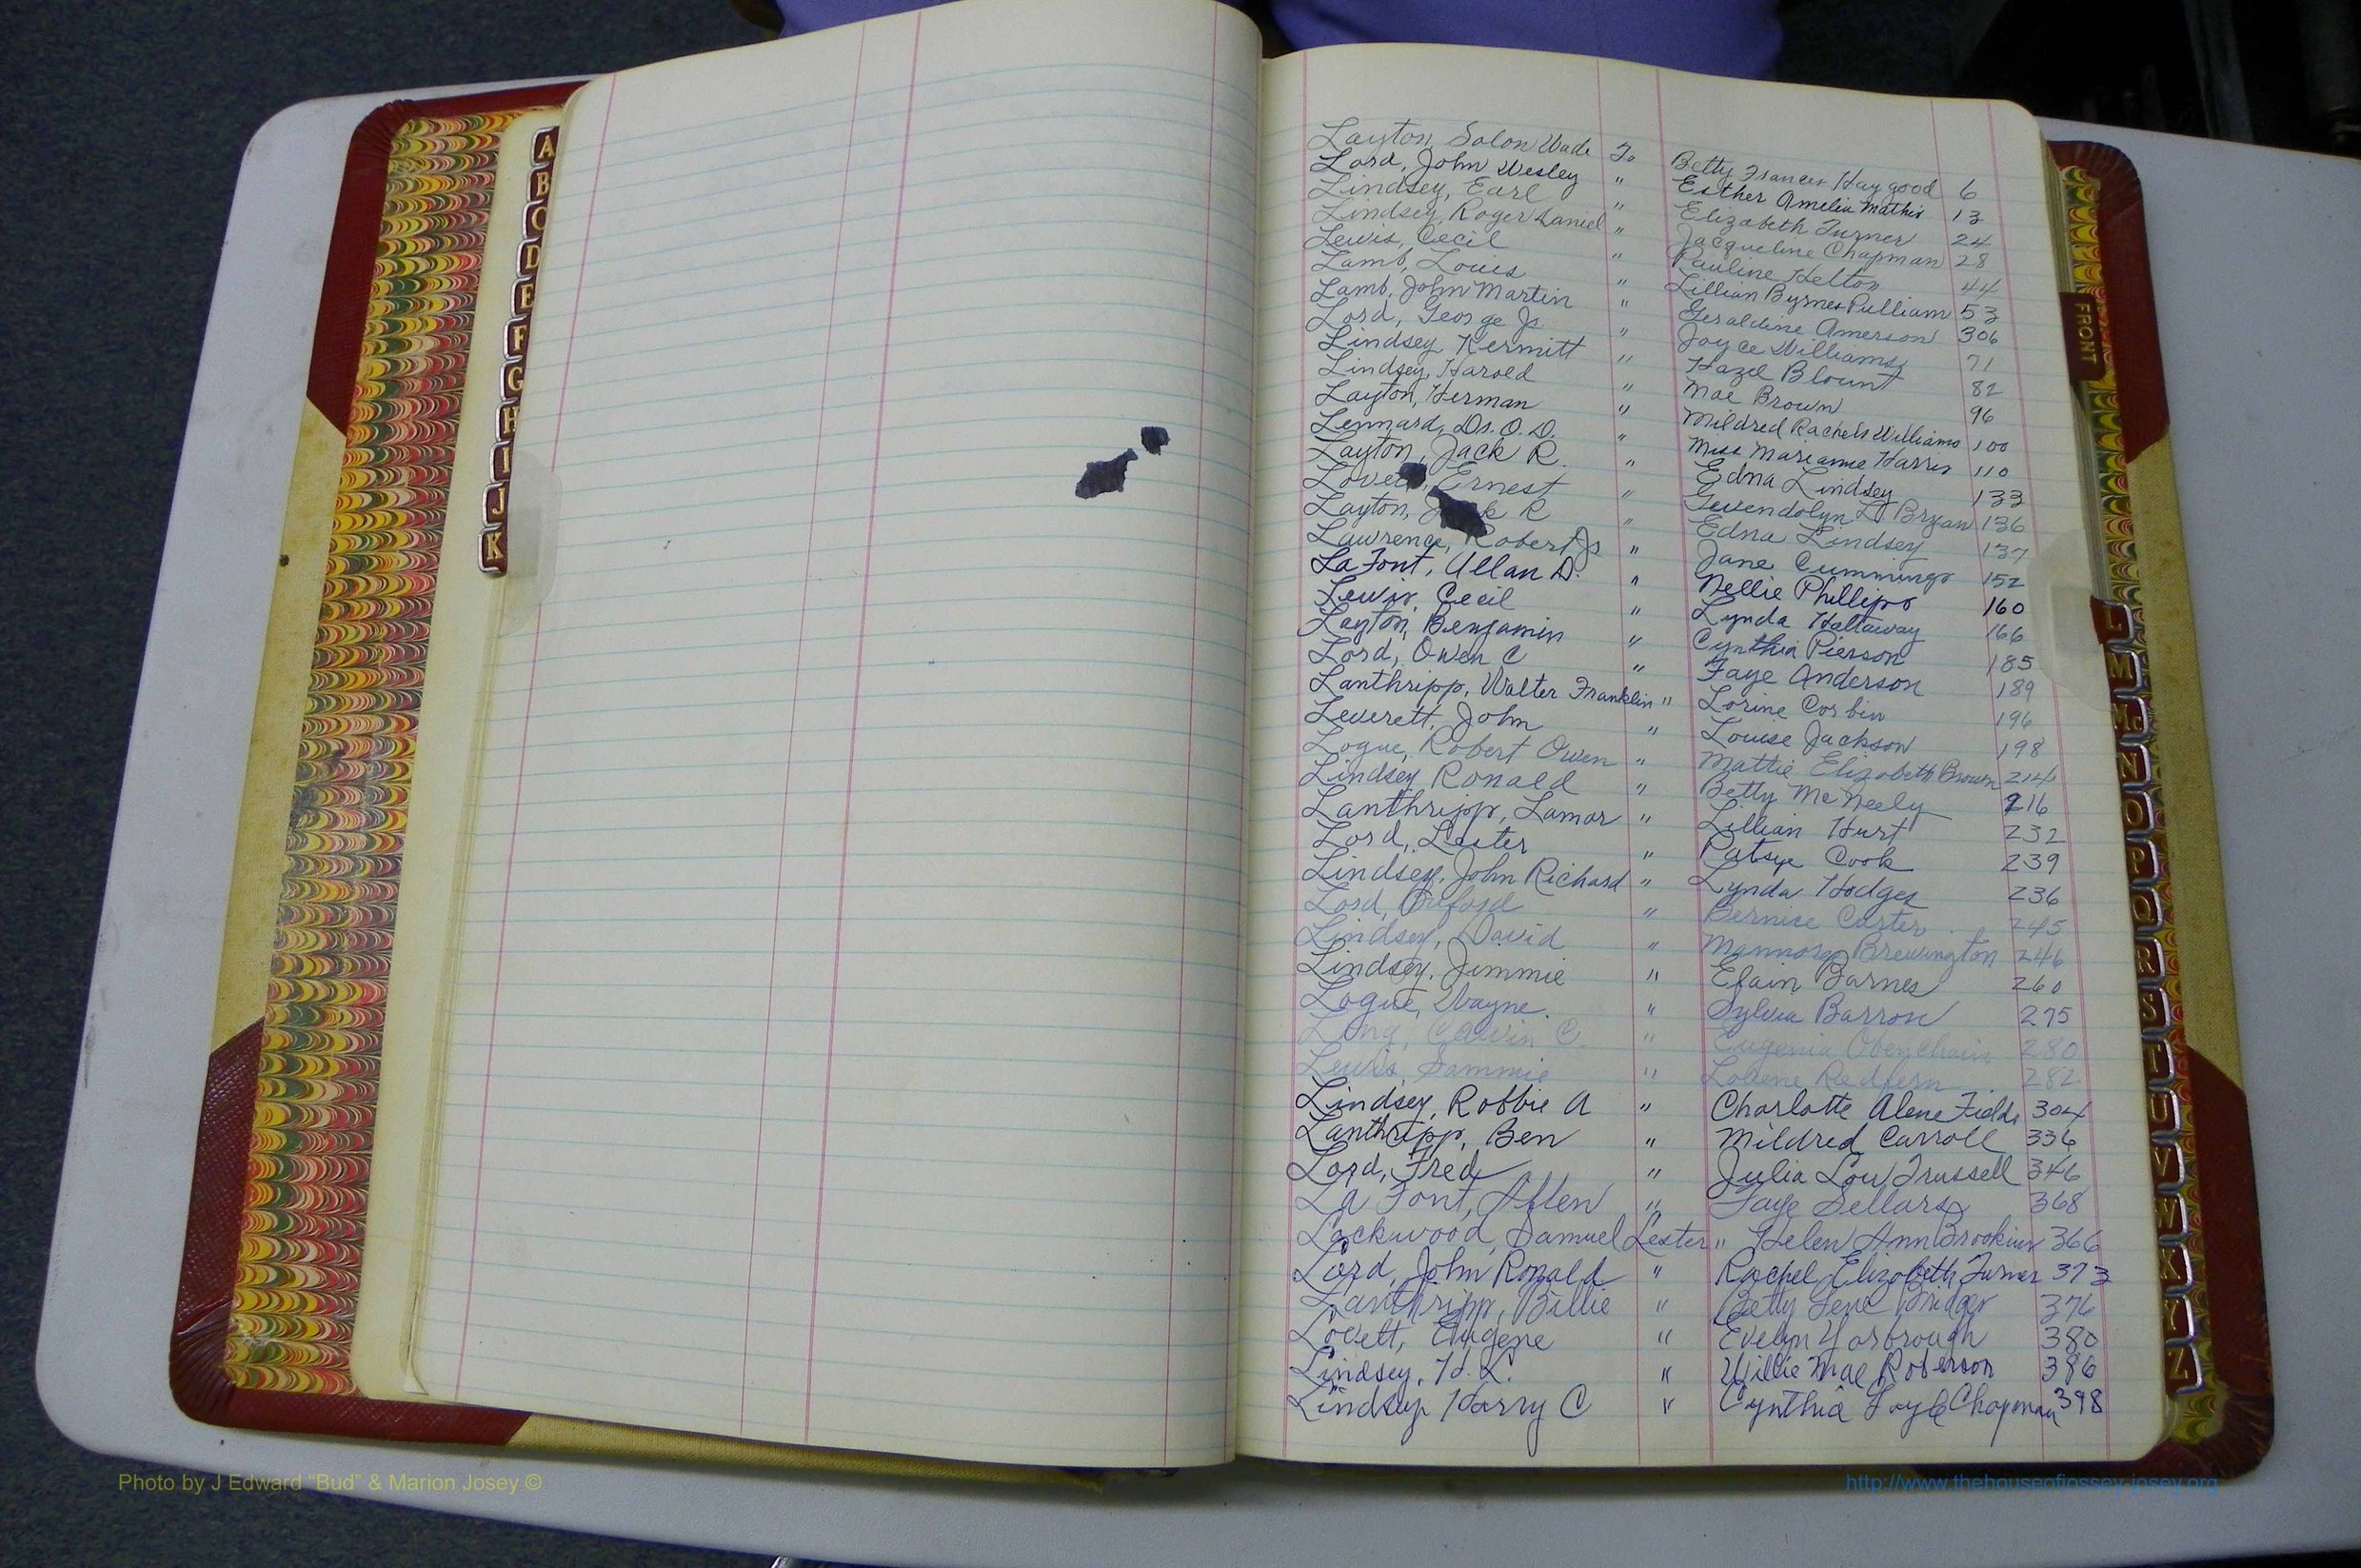 A
B
C
D
E
F
G
H
I
J
K
Layton, Solon Wade To Betty Frances Haygood 6
Lord, John Wesley " Esther Amelia Mathis 13
Lindsey, Earl " Elizabeth Turner 24
Lindsey, Roger Daniel " Jacqueline Chapman 28
Lewis, Cecil " Pauline Helton 44
Lamb, Louis " Lillian Byrnes Pulliam 53
Lamb, John Martin " Geraldine Amerson 306
Lord, George Jr. " Joyce Williams 71
Lindsey, Kermitt " Hazel Blount 82
Lindsey, Harold " Mae Brown 96
Layton, Herman " Mildred Rachels Williams 100
Lennard, Dr. O. D. " Miss Marianne Harris 110
Layton, Jack R. " Edna Lindsey 133
Ernest " Gwendolyn L. Bryan 136
Layton, R " Edna Lindsey 137
Lawrence, Robert Jr " Jane Cummings 152
LaFont, Allan D. " Nellie Phillips 160
Lewis, Cecil " Lynda Hattaway 166
Layton, Benjamin " Cynthia Pierson 185
Lord, Owen C " Faye Anderson 189
Lanthripp, Walter Franklin " Lorine Corbin 196
Leverett, John " Louise Jackson 198
Logue, Robert Owen " Mattie Elizabeth Brown 214
Lindsey Ronald " Betty McNeely 216
Lanthripp, Lamar " Lillian Hurt 232
Lord, Lester " Patsye Cook 239
Lindsey, John Richard " Lynda Hodges 236
Lord, Buford " Bernice Carter 245
Lindsey, David " Brewington 246
Lindsey, Jimmie " Elain Barnes 260
Logue, Wayne " Sylvia Barron 275
Long, Calvin C. " Eugenia Obenchain 280
Lewis, Sammie " Redfern 282
Lindsey, Robbie A " Charlotte Alene Fields 304
Lanthripp, Ben " Mildred Carroll 336
Lord, Fred " Julia Lou Trussell 346
La Font, Allen " Faye Sellars 368
Lockwood, Samuel Lester " Helen Ann Brookins 366
Lord, John Ronald " Rachel Elizabeth Turner 373
Lanthripp, Billie " Betty Jene Bridges 376
Lovett, Eugene " Evelyn Yarbrough 380
Lindsey, H. L. " Willie Mae Roberson 386
Lindsey Harry C " Cynthia Faye Chapman 398
FRONT
L
M
Mc
N
O
P
Q
R
S
T
U
V
W
X
Y
Z
Photo by J Edward “Bud” & Marion Josey ©
http://www.thehouseofjossey-josey.org